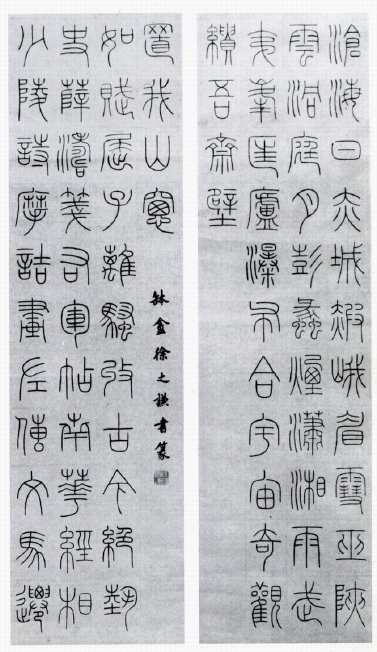 滄海日赤城霞峨眉雪巫峽
雲洞庭月彭蠡煙瀟湘雨武
夷峯匡廬瀑布合宇宙奇觀
繢吾齋壁
少陵詩摩詰畫左傳文馬遷
史薛濤箋右軍帖南華經相
如賦屈子離騷收古今絕藝
置我山窗
盦徐之謙書篆